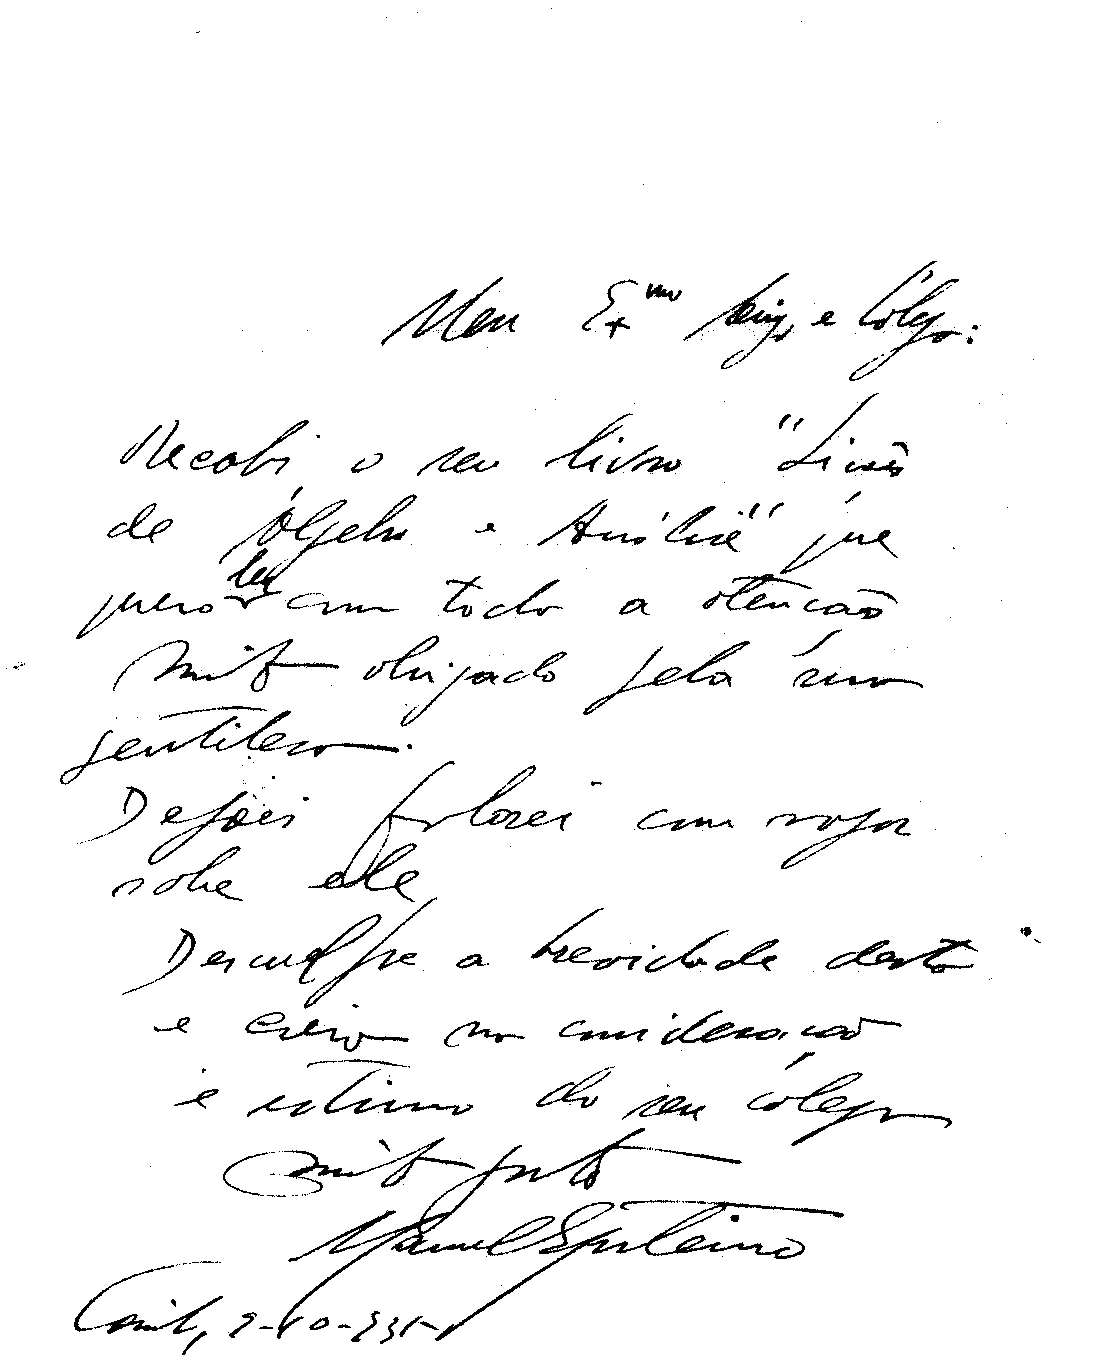 Meu Exmo e Coléga:
Recebi o seu livro "Lições
de Álgebra e Análise" que
quero ler com toda a atenção
Muito obrigado pela sua
gentileza.
Depois falarei com vagar
sobre ele
Desculpe a brevidade desta
e creia na consideração
e estima do seu coléga
muito grato
Manuel